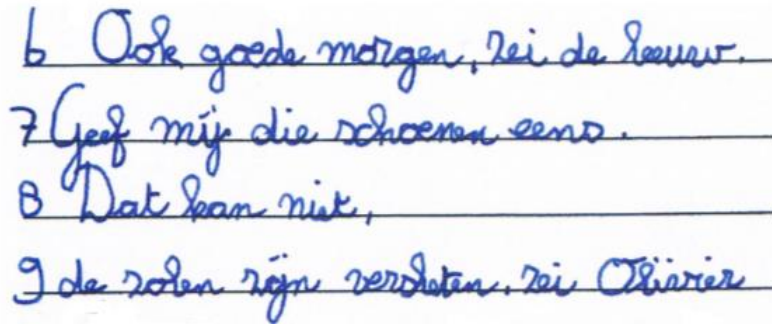 6 Ook goede morgen, zei de leeuw.
7 Geef mij die schoenen eens.
8 Dat kan niet,
9 de zolen zijn versleten, zei Olivier